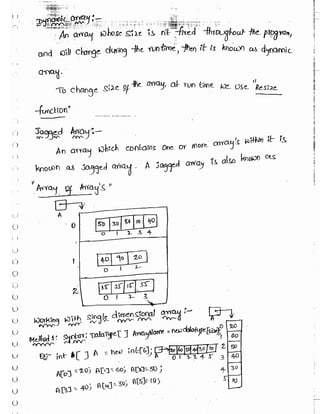 Dynamic array :-
An array whose size is not fixed throughout the program,
and will change during the runtime, then it is known as dynamic
array.
To change size of the array, at run time we use "Resize
function"
Jagged Array:-
An array which contains one or more array's within it is
known as Jagged array. A Jagged array is also known as
"Array of Array's"
A
0 50 30 40
0 1 2 3 4
1 40 90 20
0 1 2
2 35 25 15 55
0 1 2 3
Working with single dimensional array :-
Method 1: Syntax: DataType[ ] ArrayName = new datatype[size]
Eg:- int [ ] A = new int[6];
0 1 2 3 4 5
A[0] = 20; A[1] = 60; A[2] = 50;
A[3] = 40; A[4] = 30; A[5] = 10;
0 20
1 60
2 50
3 40
4 30
5 10